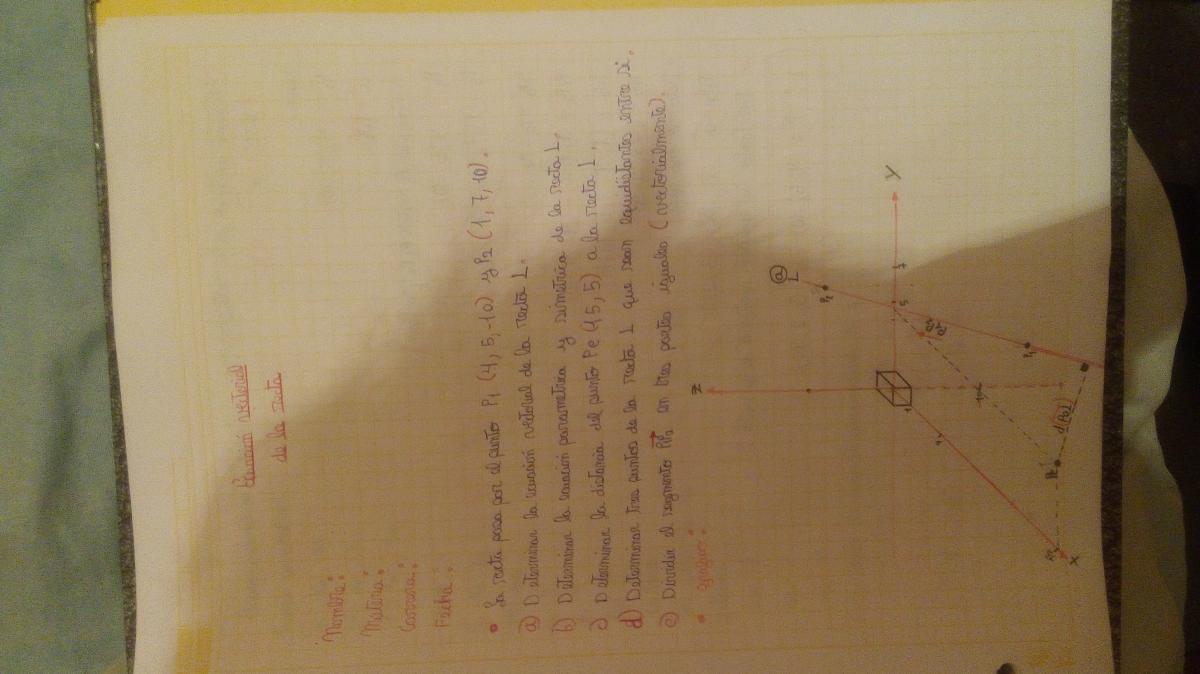 Ecuación vectorial
de la recta
Nombre:
Materia:
Carrera:
Fecha:
• La recta pasa por el punto P1 (4, 5, -10) y P2 (1, 7, 10).
a) Determinar la ecuación vectorial de la recta L.
b) Determinar la ecuación parametrica y simetrica de la recta L.
c) Determinar la distancia del punto Pe (45, 5) a la recta L.
d) Determinar tres puntos de la recta L que sean equidistantes entre si.
e) Dividir el segmento P1P2 en tres partes iguales (vectorialmente).
Z
@
L
P2
Y
7
5
P1
d(PeL)
Pe
X